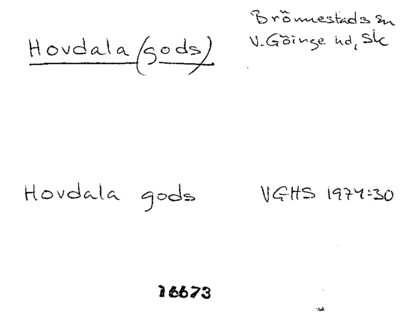 Hovdala (gods)
Brönnestads sn
V. Göinge hd, Sk
Hovdala gods VGHS 1974:30
16673